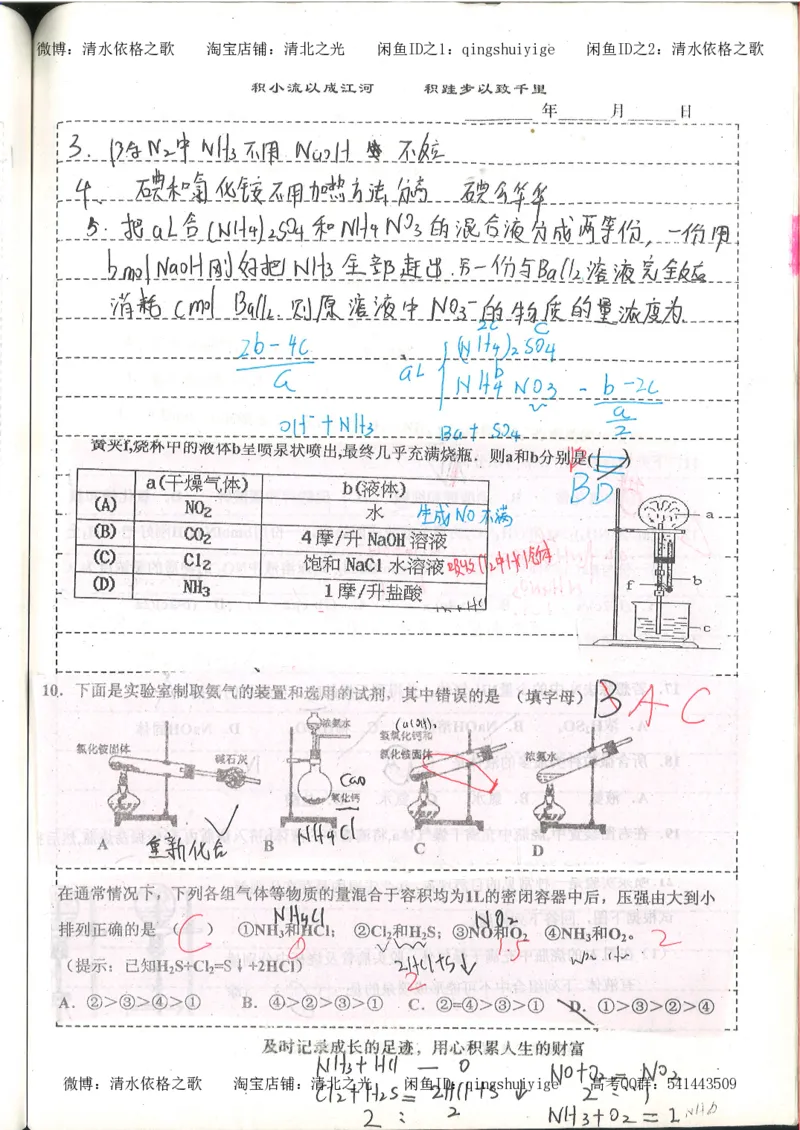 微博: 清水依格之歌 淘宝店铺: 清北之光 闲鱼ID之1: qingshuiyige 闲鱼ID之2: 清水依格之歌
积小流以成江河 积跬步以致千里
年 月 日
3. N2中 NH3不用 NaOH 不反应
4、 碘和氯化铵不用加热方法分离 碘会升华
5. 把 aL含 (NH4)2SO4 和 NH4NO3 的混合液分成两等份, 一份用
bmol NaOH 刚好把 NH3 全部赶出. 另一份与BaCl2溶液完全反应
消耗 cmol BaCl2. 则原溶液中 NO3-的物质的量浓度为
2b-4c
a
aL
2c c
(NH4)2SO4
b
NH4NO3
b-2c
a
2
OH- + NH3 Ba + SO4
黄夹f,烧杯中的液体b呈喷泉状喷出,最终几乎充满烧瓶. 则a和b分别是( )
BD
a(干燥气体) b(液体)
(A) NO2 水 生成NO 不满
(B) CO2 4摩/升NaOH溶液
(C) Cl2 饱和NaCl水溶液
(D) NH3 1摩/升盐酸
a
b
f
c
10. 下面是实验室制取氨气的装置和选用的试剂, 其中错误的是 (填字母) B A C
氯化铵固体
碱石灰
浓氨水
CaO
氧化钙
NH4Cl
氢氧化钙和
氯化铵固体
浓氨水
A 重新化合 B C D
在通常情况下, 下列各组气体等物质的量混合于容积均为1L的密闭容器中后, 压强由大到小
NH4Cl NO2
排列正确的是 ( C ) ①NH3和HCl; ②Cl2和H2S; ③NO和O2 ④NH3和O2。 2
0 1.5
(提示: 已知H2S+Cl2=S↓+2HCl) 2HCl+S↓
2
A. ②>③>④>① B. ④>②>③>① C. ②=④>③>① D. ①>③>②>④
及时记录成长的足迹, 用心积累人生的财富
NH3+HCl — 0
NO+O2 = NO2
微博: 清水依格之歌 淘宝店铺: 清北之光 闲鱼ID: qingshuiyige 高考QQ群: 541443509
Cl2+H2S= 2HCl+S↓
2 : 1
2 : 2
NH3+O2 = 1